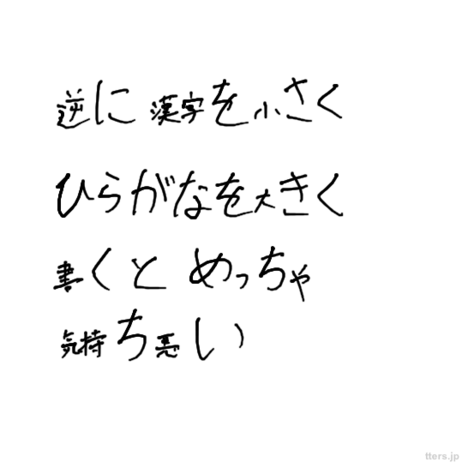 逆に漢字を小さく
ひらがなを大きく
書くと めっちゃ
気持ち悪い
tters.jp